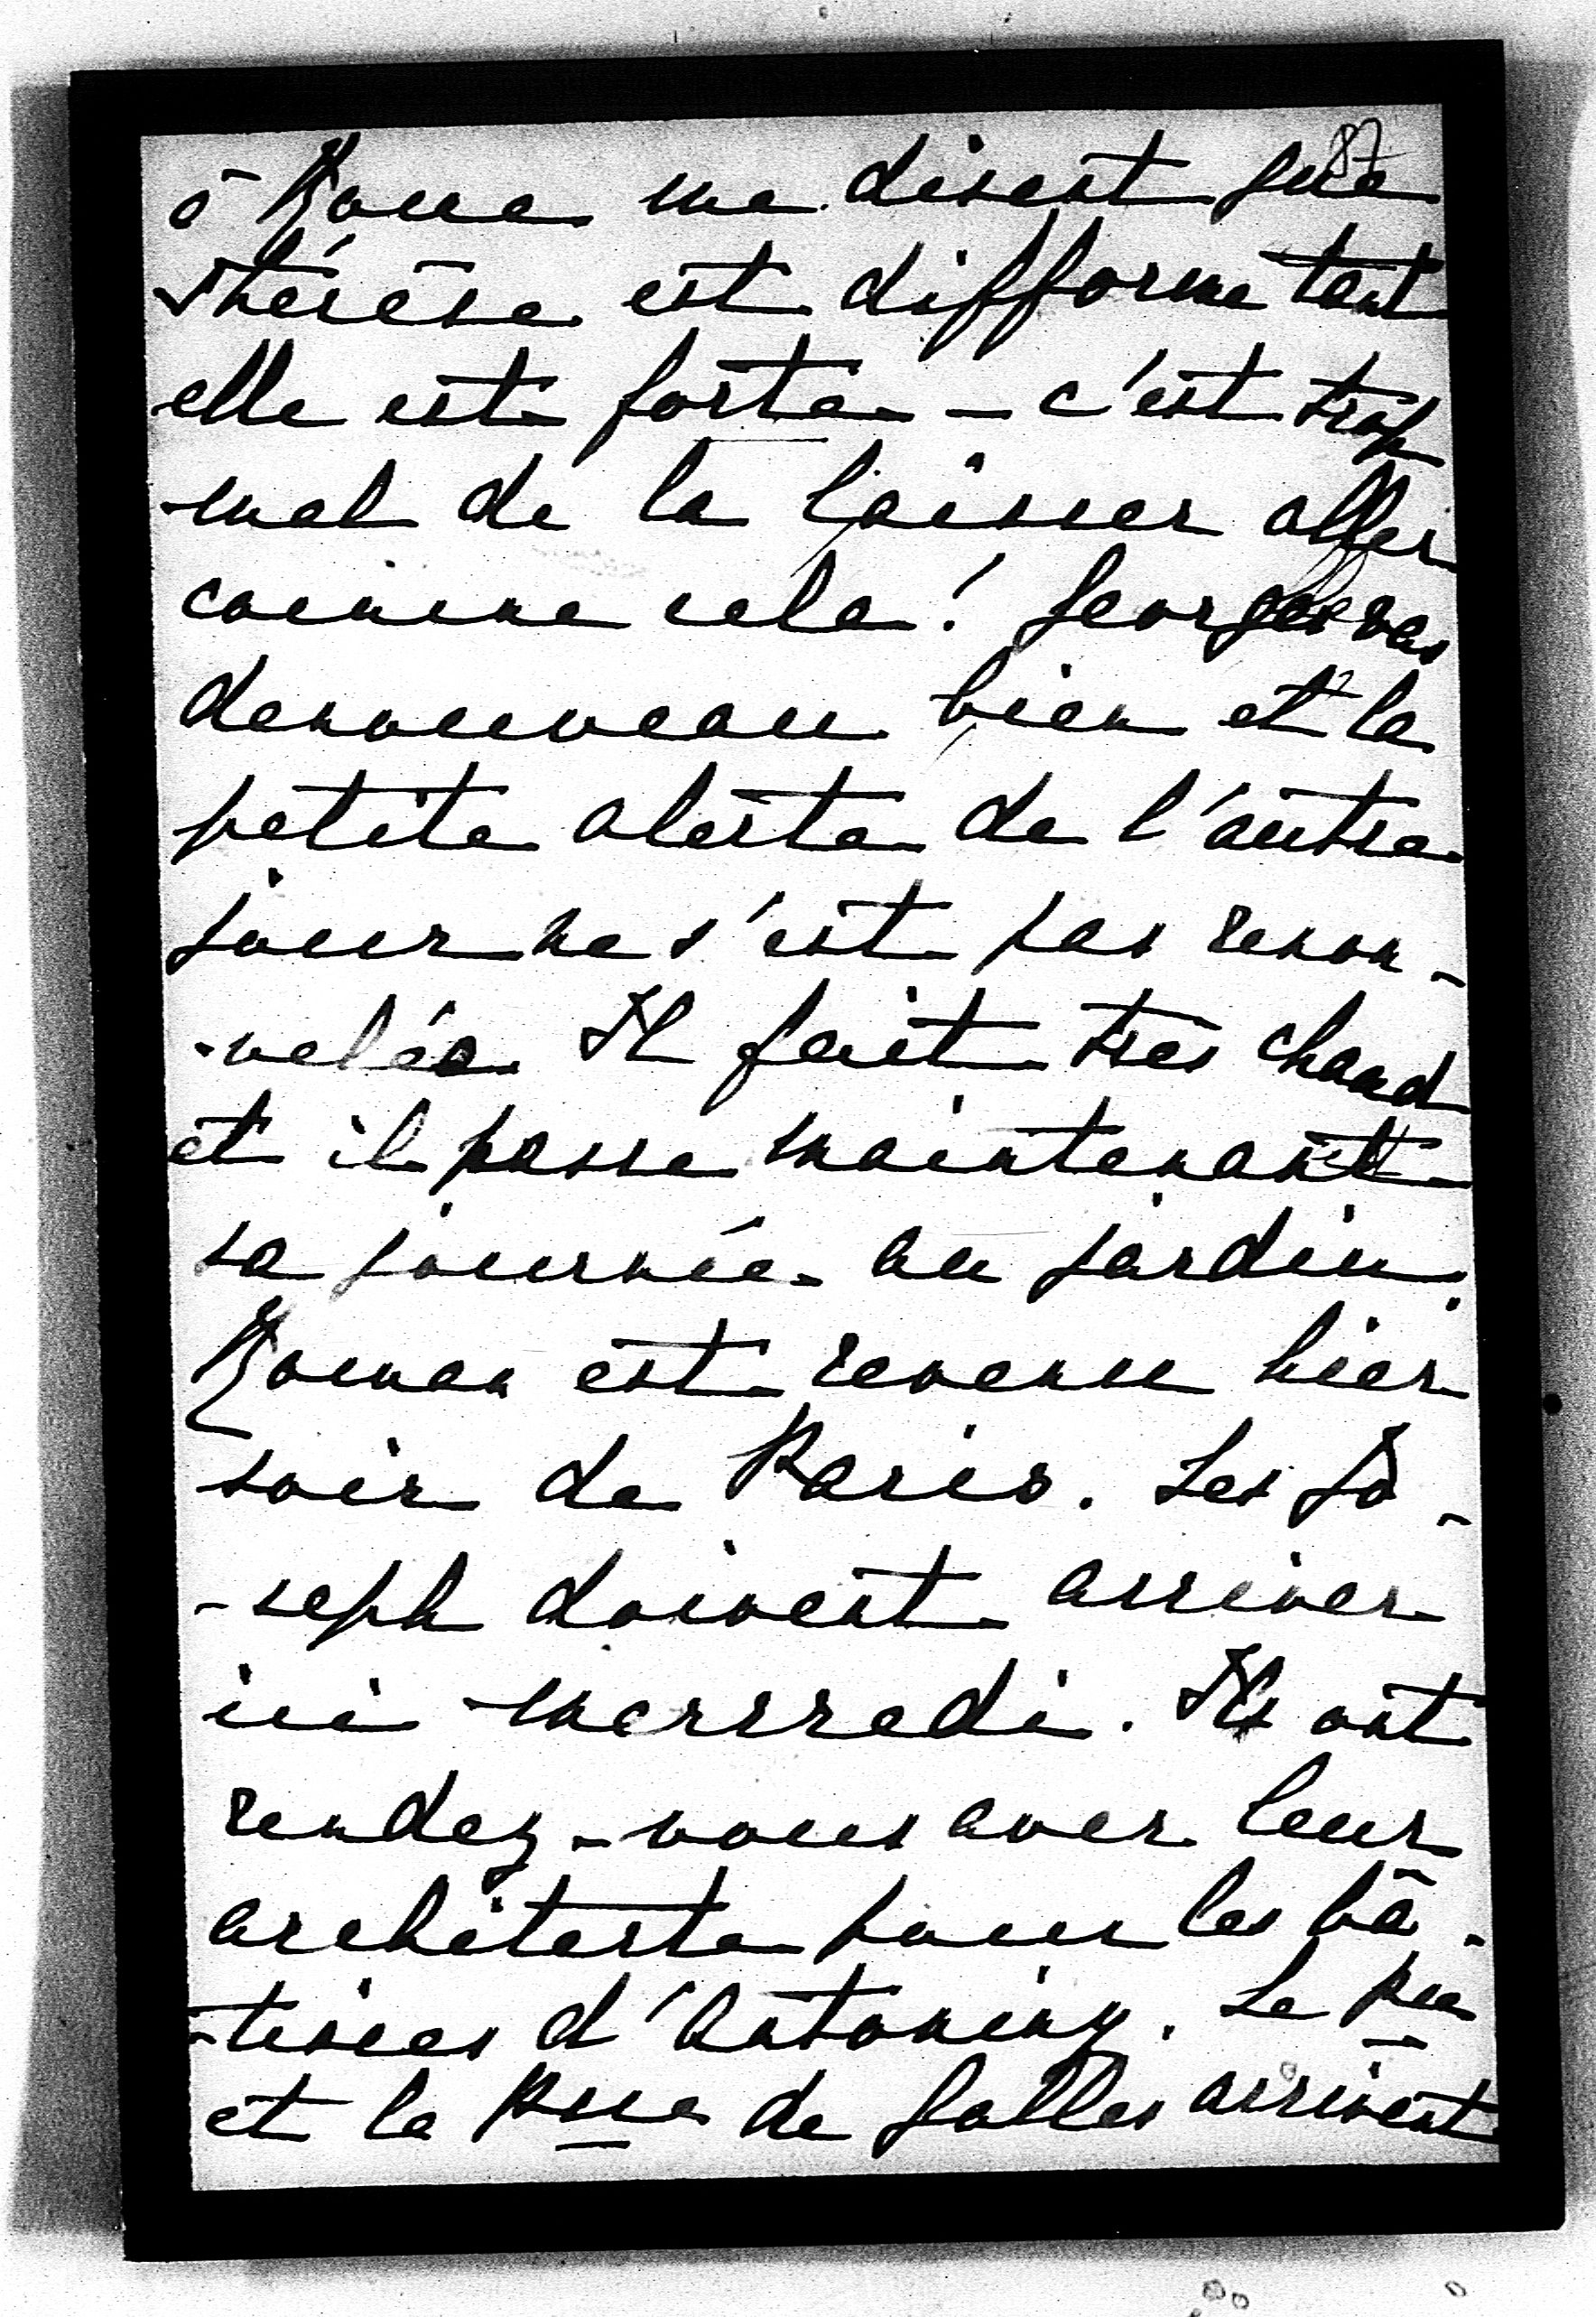 87
à Rome me disent que
Thérèse est difforme tant
elle est forte – c'est trop
mal de la laisser aller
comme cela! Georges va
denouveau bien et la
petite alerte de l'autre
jour ne s'est pas renou-
-velée. Il fait très chaud
et il passe maintenant
sa journée au jardin.
Roman est revenu hier
soir de Paris. Les Jo-
-seph doivent arriver
ici mercredi. Ils ont
rendez-vous avec leur
architecte pour les bâ-
-tisses d'Antoniny. Le Pce
et la Psse de Galles arrivent